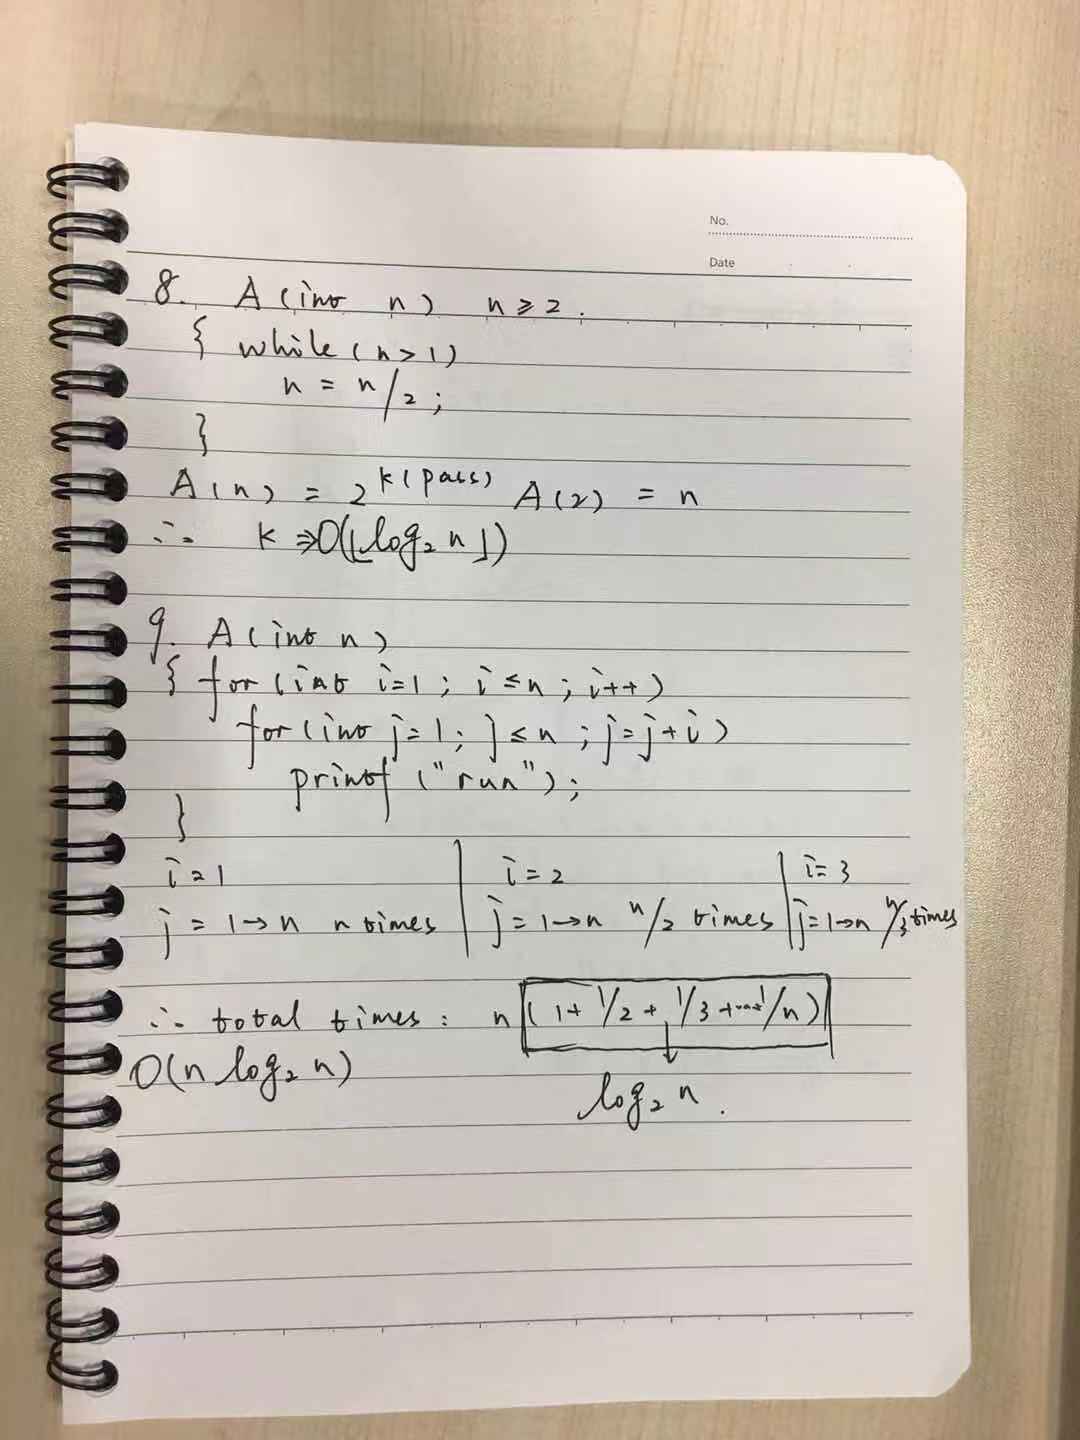 No.
Date
8. A(int n) n ≥ 2.
{ while(n>1)
n = n/2;
}
A(n) = 2^k(pass) A(2) = n
∴ k ⇒ O(⌊log₂ n⌋)
9. A(int n)
{ for(int i=1; i≤n; i++)
for(int j=1; j≤n; j=j+i)
printf("run");
}
i=1 | i=2 | i=3
j=1→n n times | j=1→n n/2 times | j=1→n n/3 times
∴ total times: n(1+1/2+1/3+...+1/n)
O(n log₂ n)
log₂ n.